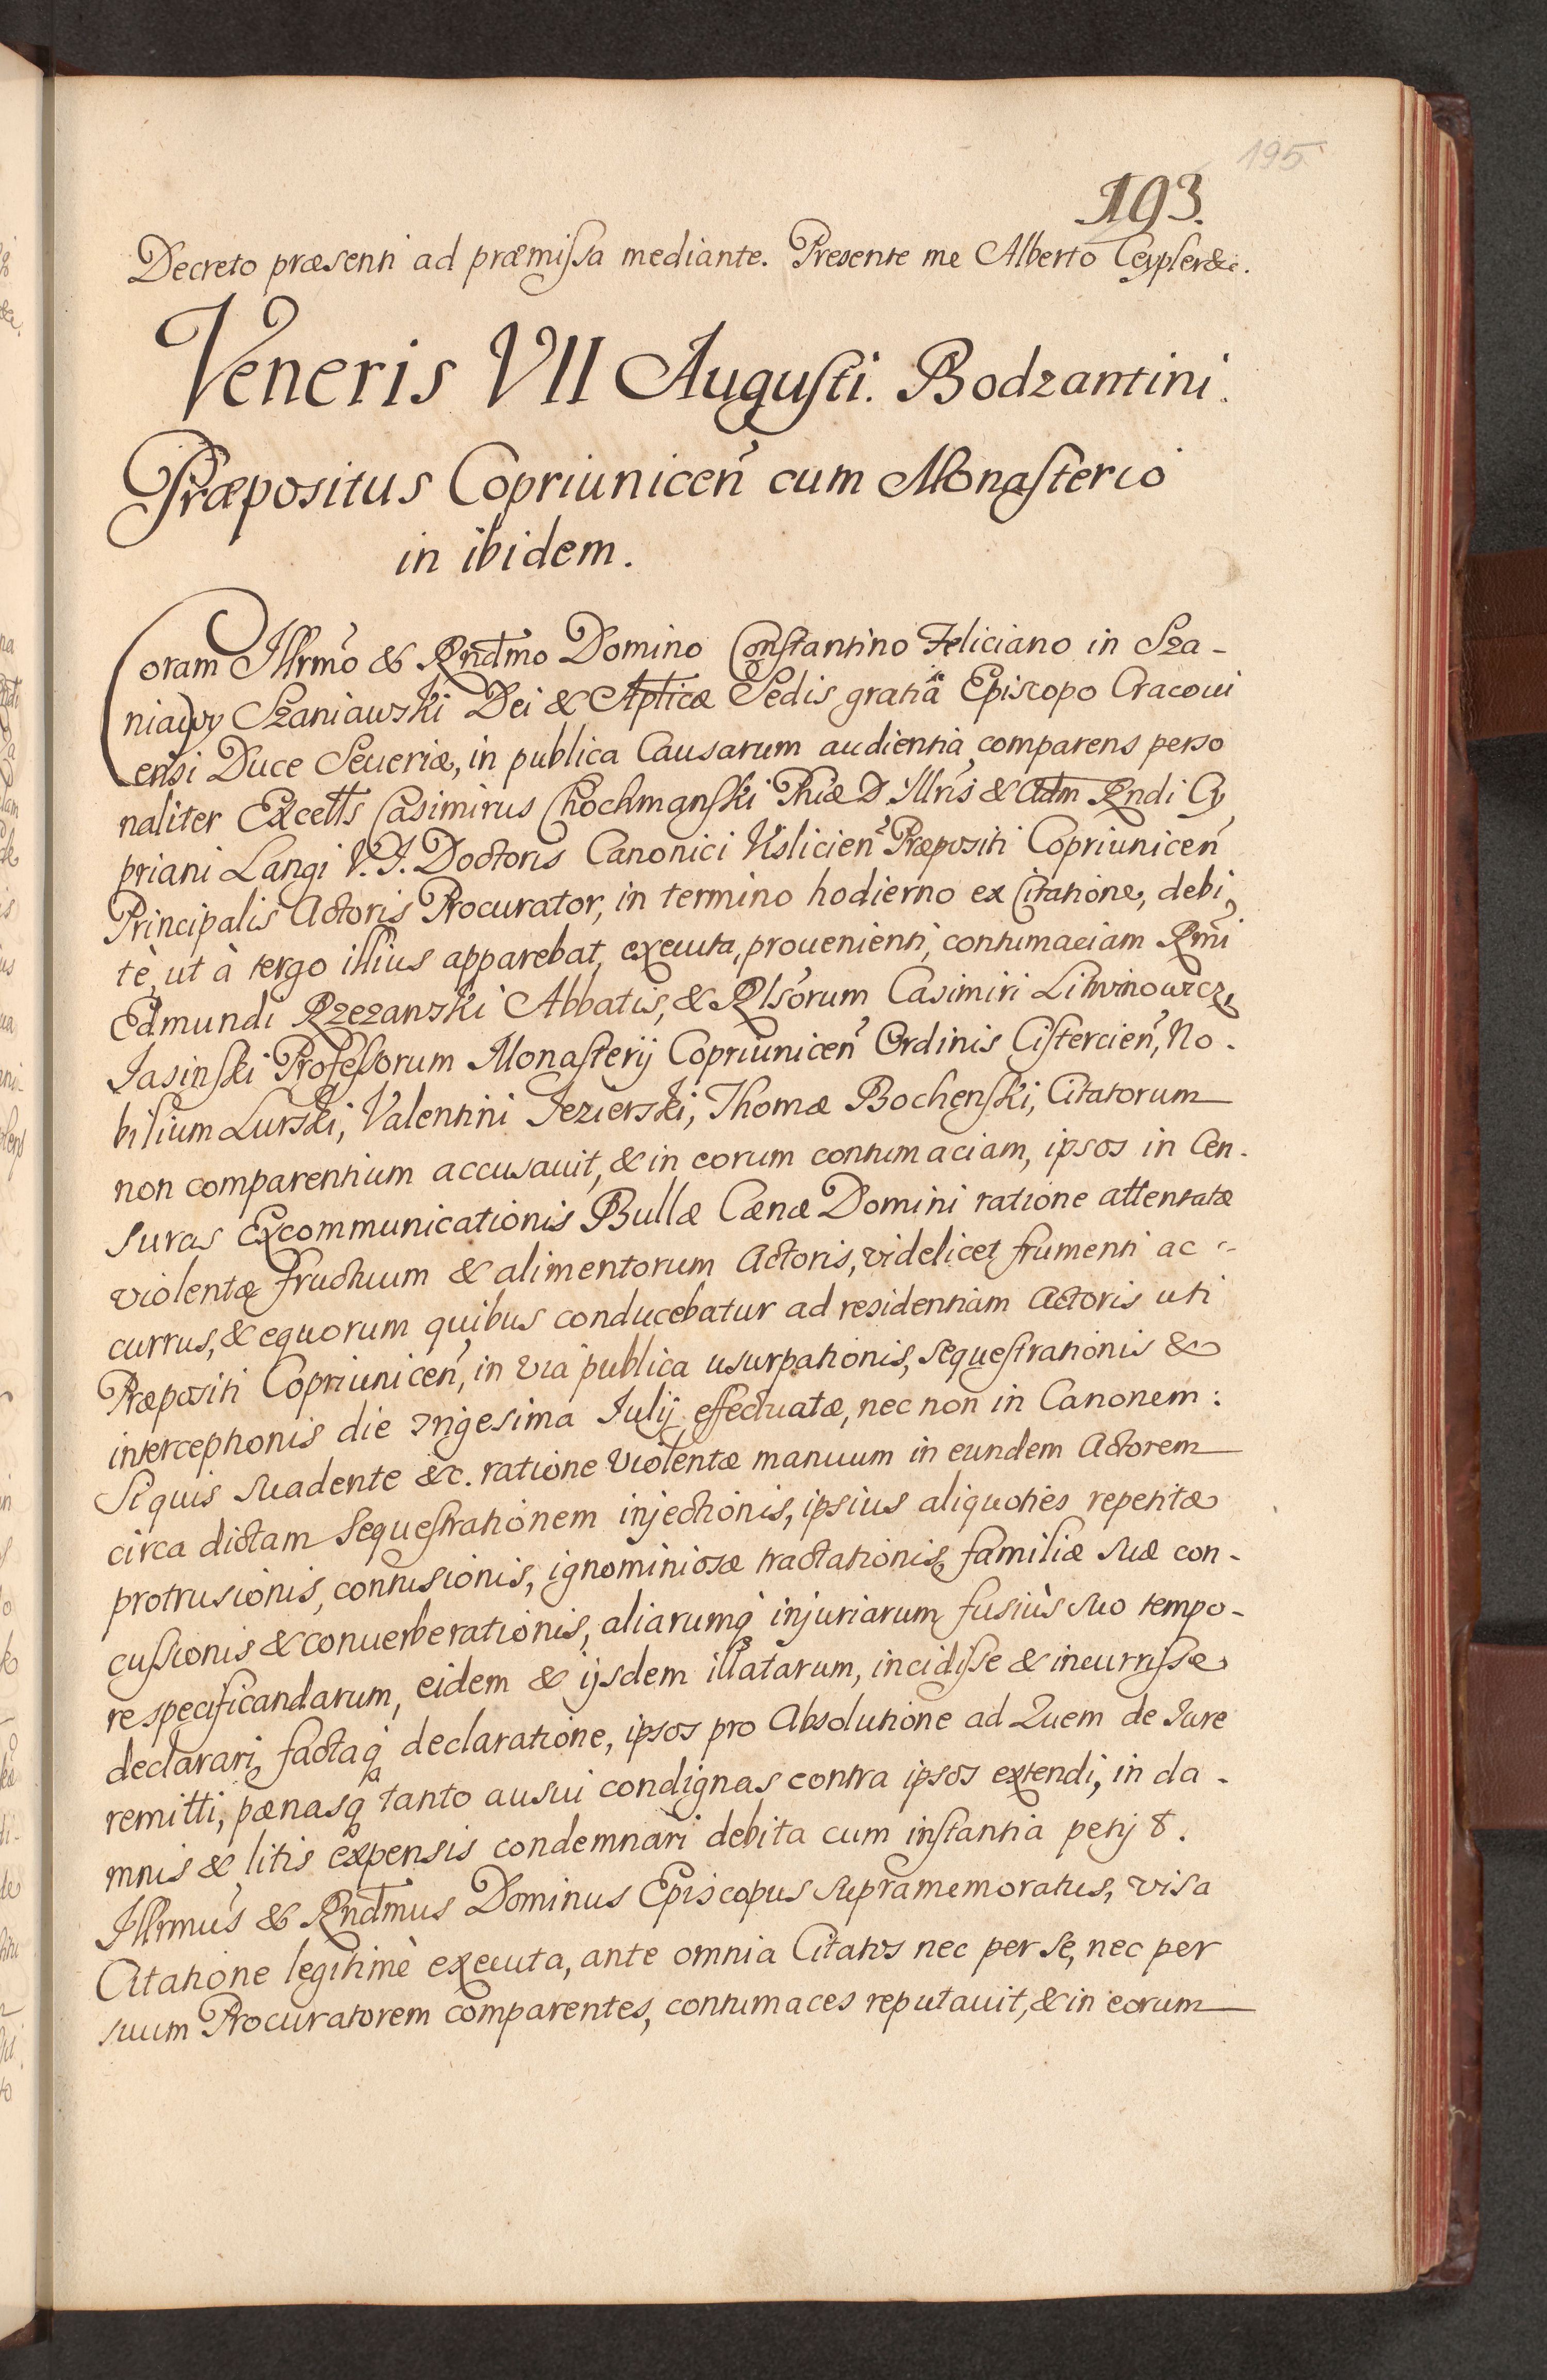 195
193.
Decreto præsenti ad præmissa mediante. Presente me Alberto Ceypler &c.
Veneris VII Augusti. Bodzantini.
Præpositus Copriunicen̄ cum Monasterio
in ibidem.
Coram Illrmo & Rndmo Domino Constantino Feliciano in Sza-
niawy Szaniawski Dei & Apticæ Sedis gratia Episcopo Cracoui
ensi Duce Seueriæ, in publica Causarum audientia comparens perso
naliter Excells Casimirus Chochmanski Phiæ D. Illris & Adm Rndi Cy
priani Langi V. J. Doctoris Canonici Vislicien̄ Præpositi Copriunicen̄
Principalis Actoris Procurator, in termino hodierno ex Citatione, debi,
tè, ut à tergo illius apparebat, executa, prouenienti, contumaciam Rmi
Edmundi Rzezanski Abbatis, & Rlsorum Casimiri Litwinowicz,
Jasinski Professorum Monasterij Copriunicen̄ Ordinis Cistercien̄, No-
bilium Lurski, Valentini Jezierski, Thomæ Bochenski, Citatorum
non comparentium accusauit, & in eorum contumaciam, ipsos in Cen-
suras Excommunicationis Bullæ Cænæ Domini ratione attentatæ
violentæ fructuum & alimentorum Actoris, videlicet frumenti ac
currus, & equorum quibus conducebatur ad residentiam Actoris uti
Præpositi Copriunicen̄, in via publica usurpationis, sequestrationis &
interceptionis die trigesima Julij effectuatæ, nec non in Canonem:
Si quis suadente &c. ratione violentæ manuum in eundem Actorem
circa dictam sequestrationem injectionis, ipsius aliquoties repetitæ
protrusionis, contusionis, ignominiosæ tractationis, familiæ suæ con-
cussionis & conuerberationis, aliarumq injuriarum fusiùs suo tempo-
re specificandarum, eidem & ijsdem illatarum, incidisse & incurrisse
declarari, factaq declaratione, ipsos pro Absolutione ad Quem de Jure
remitti, pænasq tanto ausui condignas contra ipsos extendi, in da-
mnis & litis expensis condemnari debita cum instantia petij &.
Illrmus & Rndmus Dominus Episcopus supramemoratus, visa
Citatione legitimè executa, ante omnia Citatos nec per se, nec per
suum Procuratorem comparentes, contumaces reputauit, & in eorum